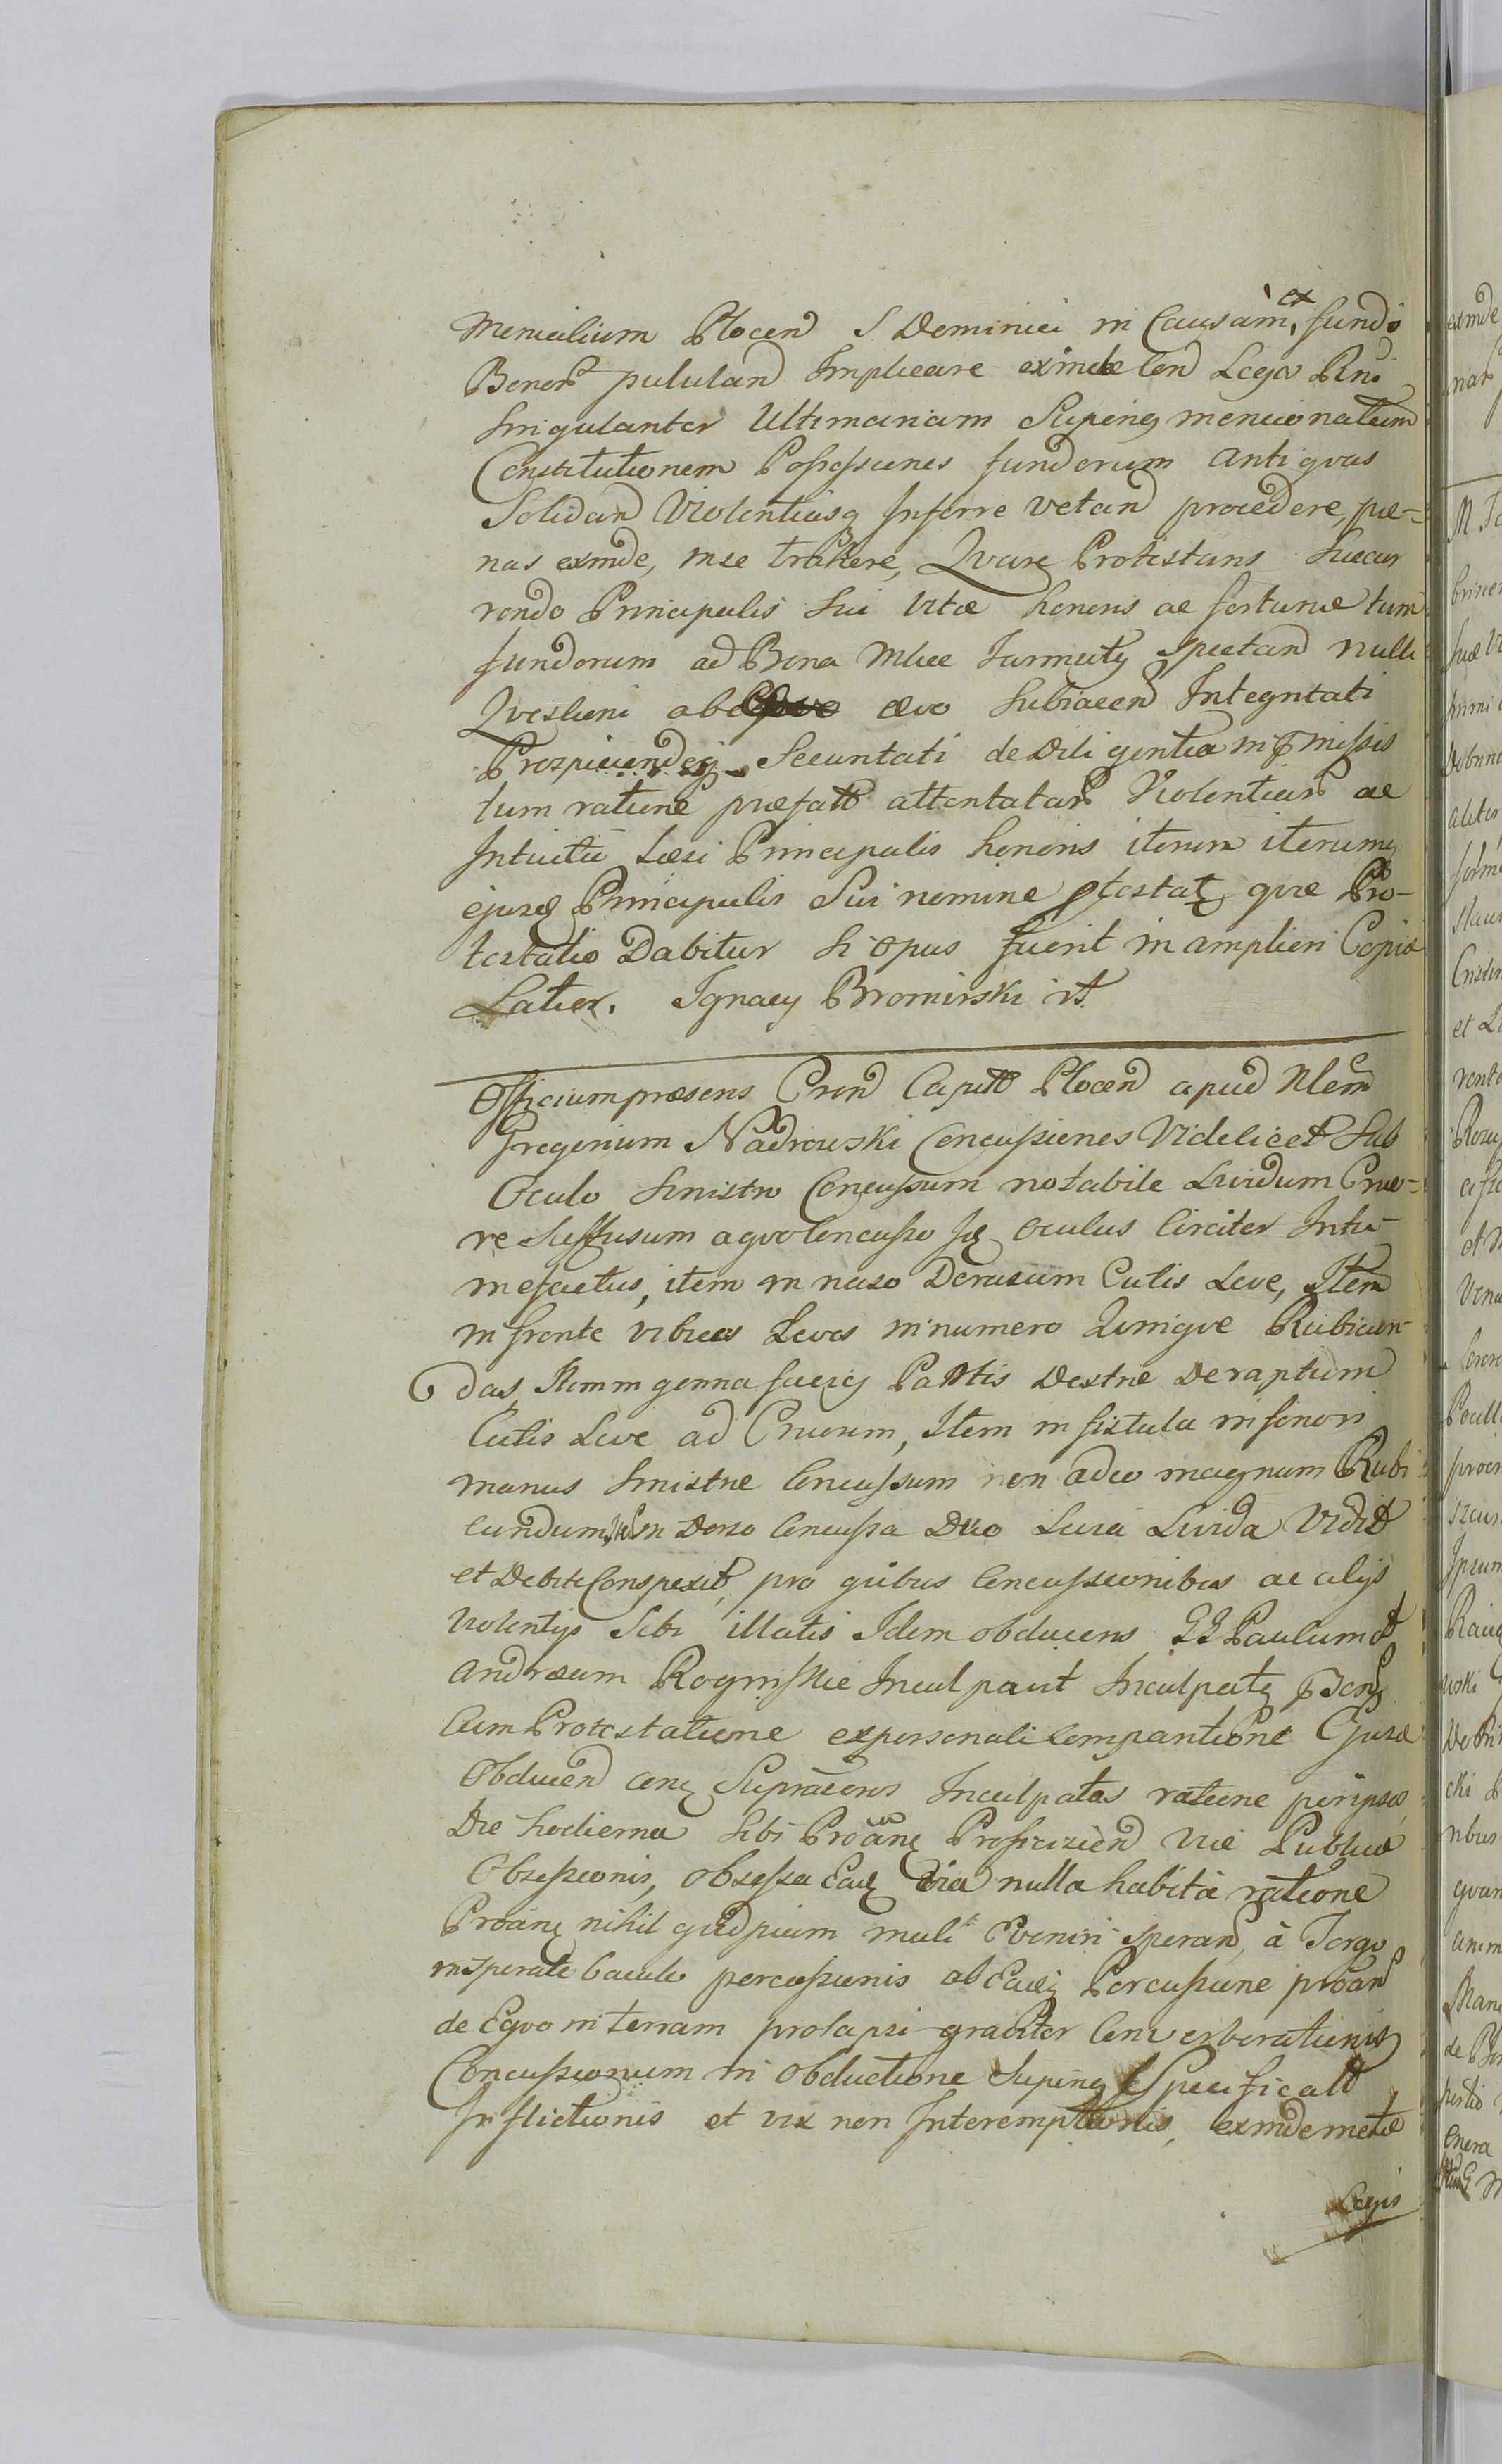 Monialium Plocen S Dominici in Causam ex fundo
Bonor pululan Implicare exinde Con Leges Rni
Singulanter Ultimariam Superius mencionatam
Constitutionem Possessiones fundorum antiquas
Solidan Violentiasq Inferre vetan procedere, pae-
nas exinde, in se trahere, Quare Protestans Succur
rendo Principalis Sui Vitae honoris ac fortunae tum
fundorum ad Bona Mlice spectan nulli
Questioni ab aevo Subiacen Integritati
Prospiciendoq Securitati de Diligentia in pmissis
tum ratione praefatt attentatar Violentiar ac
Intuitu Laesi Principalis honoris iterum iterumq
ejusd Principalis Sui nomine ptestat quae Pro-
testatio Dabitur Si opus fuerit in ampliori Copia
Latior. Ignacy Bromirski rt

Officium praesens Cren Capitt Plocen apud Nlem
Gregorium Nadrowski Concussiones Videlicet Sub
Oculo Sinistro Concussum notabile Lividum Cruo-
re Suffusum a quo Concusso se oculus Circiter Intu-
mefactus, item in naso Derasum Cutis Leve, Item
in fronte vibices Leves in numero Quinque Rubicun-
das, Item in genna faciej Partis Dextrae Deraptum
Cutis Leve ad Cruorem, Item in fistula inferiori
manus Sinistrae Concussum non adeo magnum Rubi
cundum, in Dorso Concussa Duo Livida Vidit
et Debite Conspexit, pro quibus Concussionibus ac alijs
Violentijs Sibi illatis Idem obducens GG Paulum et
Andraeum Roginskie Inculpavit
Cum Protestatione ex personali Comparitione Ejusd
Obducen Supra Inculpatos ratione per ipsos
Die hodierna Sibi Proane Proficiscien Viae Publicae
Obsessionis, obsessa Eaq Via nulla habita ratione
Proane nihil quidpiam mali Eveniri speran, à Tergo
insperate baculo percussionis ab Eaq Percussione proan
de Equo in terram prolapsi graviter Converberationis
Concussionum in obductione Superius Specificatt
Inflictionis et vix non Interemptionis, exinde metae
Legis